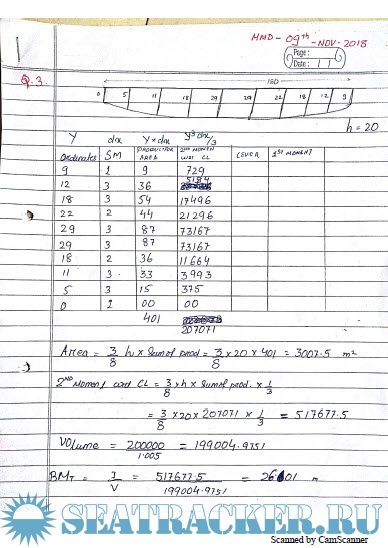 MMD - 09th - NOV - 2018
Page:
Date: / /
Q.3.
180
0 5 11 18 29 29 22 18 12 9
h = 20
Y dnx Y*dnx y³dx/3
ordinates SM PRODUCT FOR AREA 2ND MOMEN WRT CL LEVER 1ST MOMENT
9 1 9 729
12 3 36 5184
18 3 54 17496
22 2 44 21296
29 3 87 73167
29 3 87 73167
18 2 36 11664
11 3 33 3993
5 3 15 375
0 1 00 00
401 207071
Area = 3/8 h x Sum of prod = 3/8 x 20 x 401 = 3007.5 m²
2ND Moment cont CL = 3/8 x h x Sum of prod. x 1/3
= 3/8 x 20 x 207071 x 1/3 = 517677.5
Volume = 200000/1.005 = 199004.9751
BMT = I/V = 517677.5/199004.9751 = 2.601 m
SEATRACKER.RU
Scanned by CamScanner